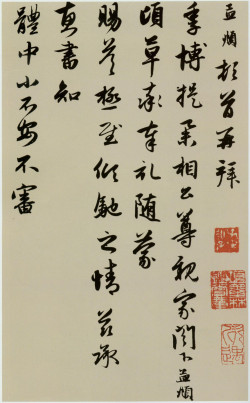 孟頫頓首再拜
季博提舉相公尊親家閣下孟頫
頃草率奉札隨蒙
賜答極慰傾馳之情茲承
惠書知
體中小不安不審